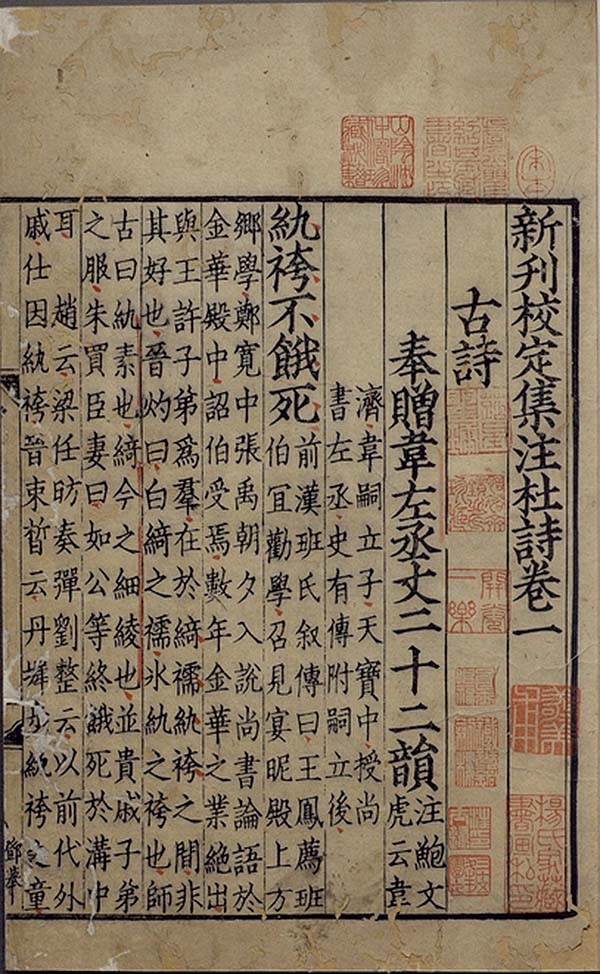 新刊校定集注杜詩卷一
古詩
奉贈韋左丞丈二十二韻
注鮑文
虎云韋
濟韋嗣立子天寳中授尚
書左丞史有傳附嗣立後
紈袴不餓死
前漢班氏叙傳曰王鳳薦班
伯宜勸學召見宴昵殿上方
鄉學鄭寬中張禹朝夕入說尚書論語於
金華殿中詔伯受焉數年金華之業絕出
與王許子弟爲羣在於綺襦紈袴之間非
其好也晉灼曰白綺之襦冰紈之袴也師
古曰紈素也綺今之細綾也並貴戚子弟
之服朱買臣妻曰如公等終餓死於溝中
耳 趙云梁任昉奏彈劉整云以前代外
戚仕因紈袴晉束晳云丹墀步紈袴之童
鄧舉
山陰沈仲濤珍藏秘籍
開卷一樂